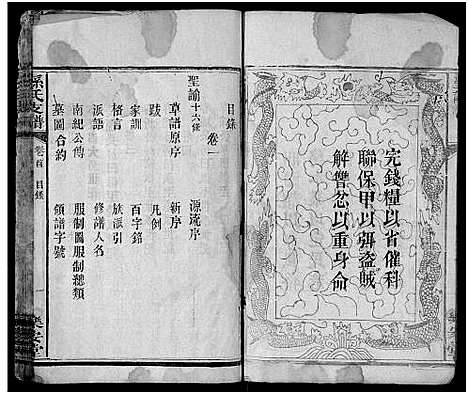 完錢糧以省催科
聯保甲以弭盜賊
解讐忿以重身命
孫氏支譜
卷首 目錄
一
樂安堂
目錄
卷一
聖諭十六條
草譜原序 源流序
跋 新序
家訓 凡例
格言 百字銘
派語 族派引
南紀公傳 修譜人名
墓圖合約 服制圖服制總類
領譜字號